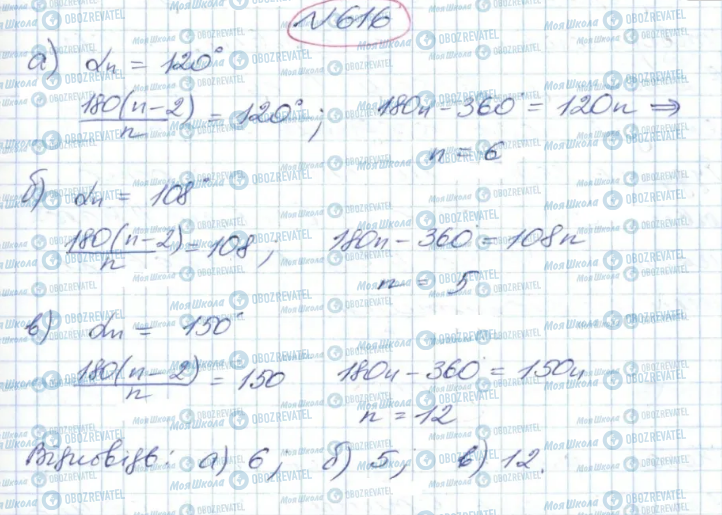 №616
а) αn = 120°
180(n-2)/n = 120°; 180n - 360° = 120n ⇒
n = 6
б) αn = 108°
180(n-2)/n = 108; 180n - 360° = 108n
n = 5
в) αn = 150°
180(n-2)/n = 150 180n - 360° = 150n
n = 12
Відповідь: а) 6; б) 5; в) 12.
Моя Школа OBOZREVATEL